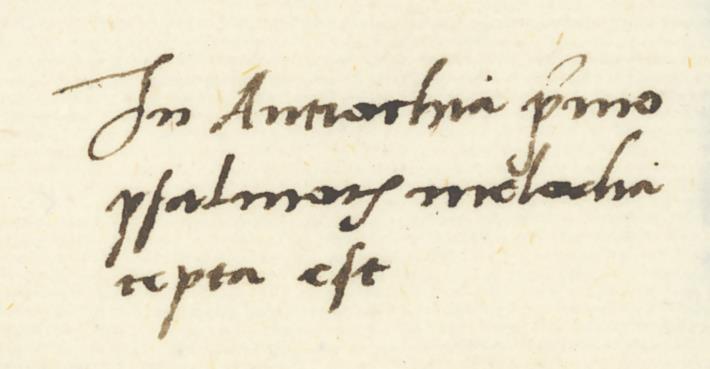 In Antiochia pͥmo
psalmoꝝ melodia
cepta est